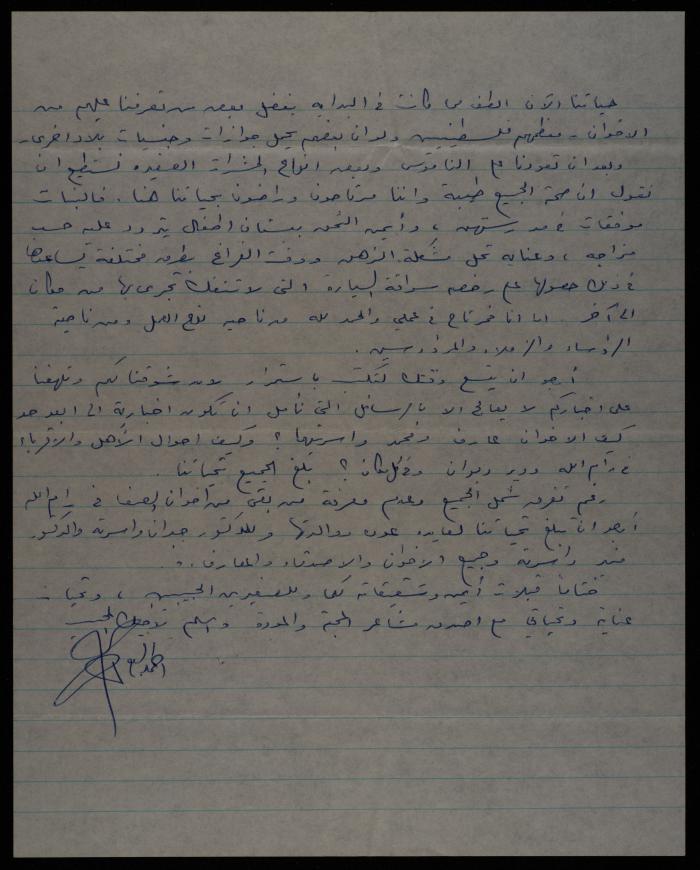 حياتنا الآن الطف مما كانت في البدايه بفضل بعض من تعرفنا عليهم من
الاخوان - معظمهم فلسطينيين ولو ان بعضهم يحمل جوازات وجنسيات بلاد اخرى -
وبعد ان تعودنا على الناموس وبعض انواع الحشرات الصغيره نستطيع ان
نقول ان صحة الجميع طيبة واننا مرتاحون وراضون بحياتنا هنا . فالبنات
موفقات في مدرستهن ، وأيمن التحق ببستان اطفال يتردد عليه حسب
مزاجه ، وعنايه تحل مشكلة الزهق ووقت الفراغ بطرق مختلفة يساعدها
في ذلك حصولها على رخصه سواقة السيارة التي لا تنفك تجري بها من مكان
الى آخر . اما انا فمرتاح في عملي والحمد لله من ناحيه نوع العمل ومن ناحية
الرؤساء والزملاء والمرؤوسين .
أرجو ان يتسع وقتك لتكتب باستمرار لان شوقنا لكم وتلهفنا
على اخباركم لا يعالج الا بالرسائل التي نأمل ان تكون اخبارية الى ابعد حد
كيف الاخوان عارف ومحمد واسرتيهما ؟ وكيف احوال الأهل والاقرباء
في رام الله ودير دبوان وفي كل مكان ؟ بلغ الجميع تحياتنا .
رغم تفرق شمل الجميع وعدم معرفة من بقي من اخوان الصفا في رام الله
أرجو ان تبلغ تحياتنا لعايده عوده ووالدتها وللدكتور جدان واسرته والدكتور
واسرته وجميع الاخوان والاصدقاء والمعارف .
ختاما قبلات أيمن وشقيقاته لكما وللصغيرين الحبيبين ، وتحيات
عناية وتحياتي مع اصدق مشاعر المحبة والمودة واسلم لأخيك المحب